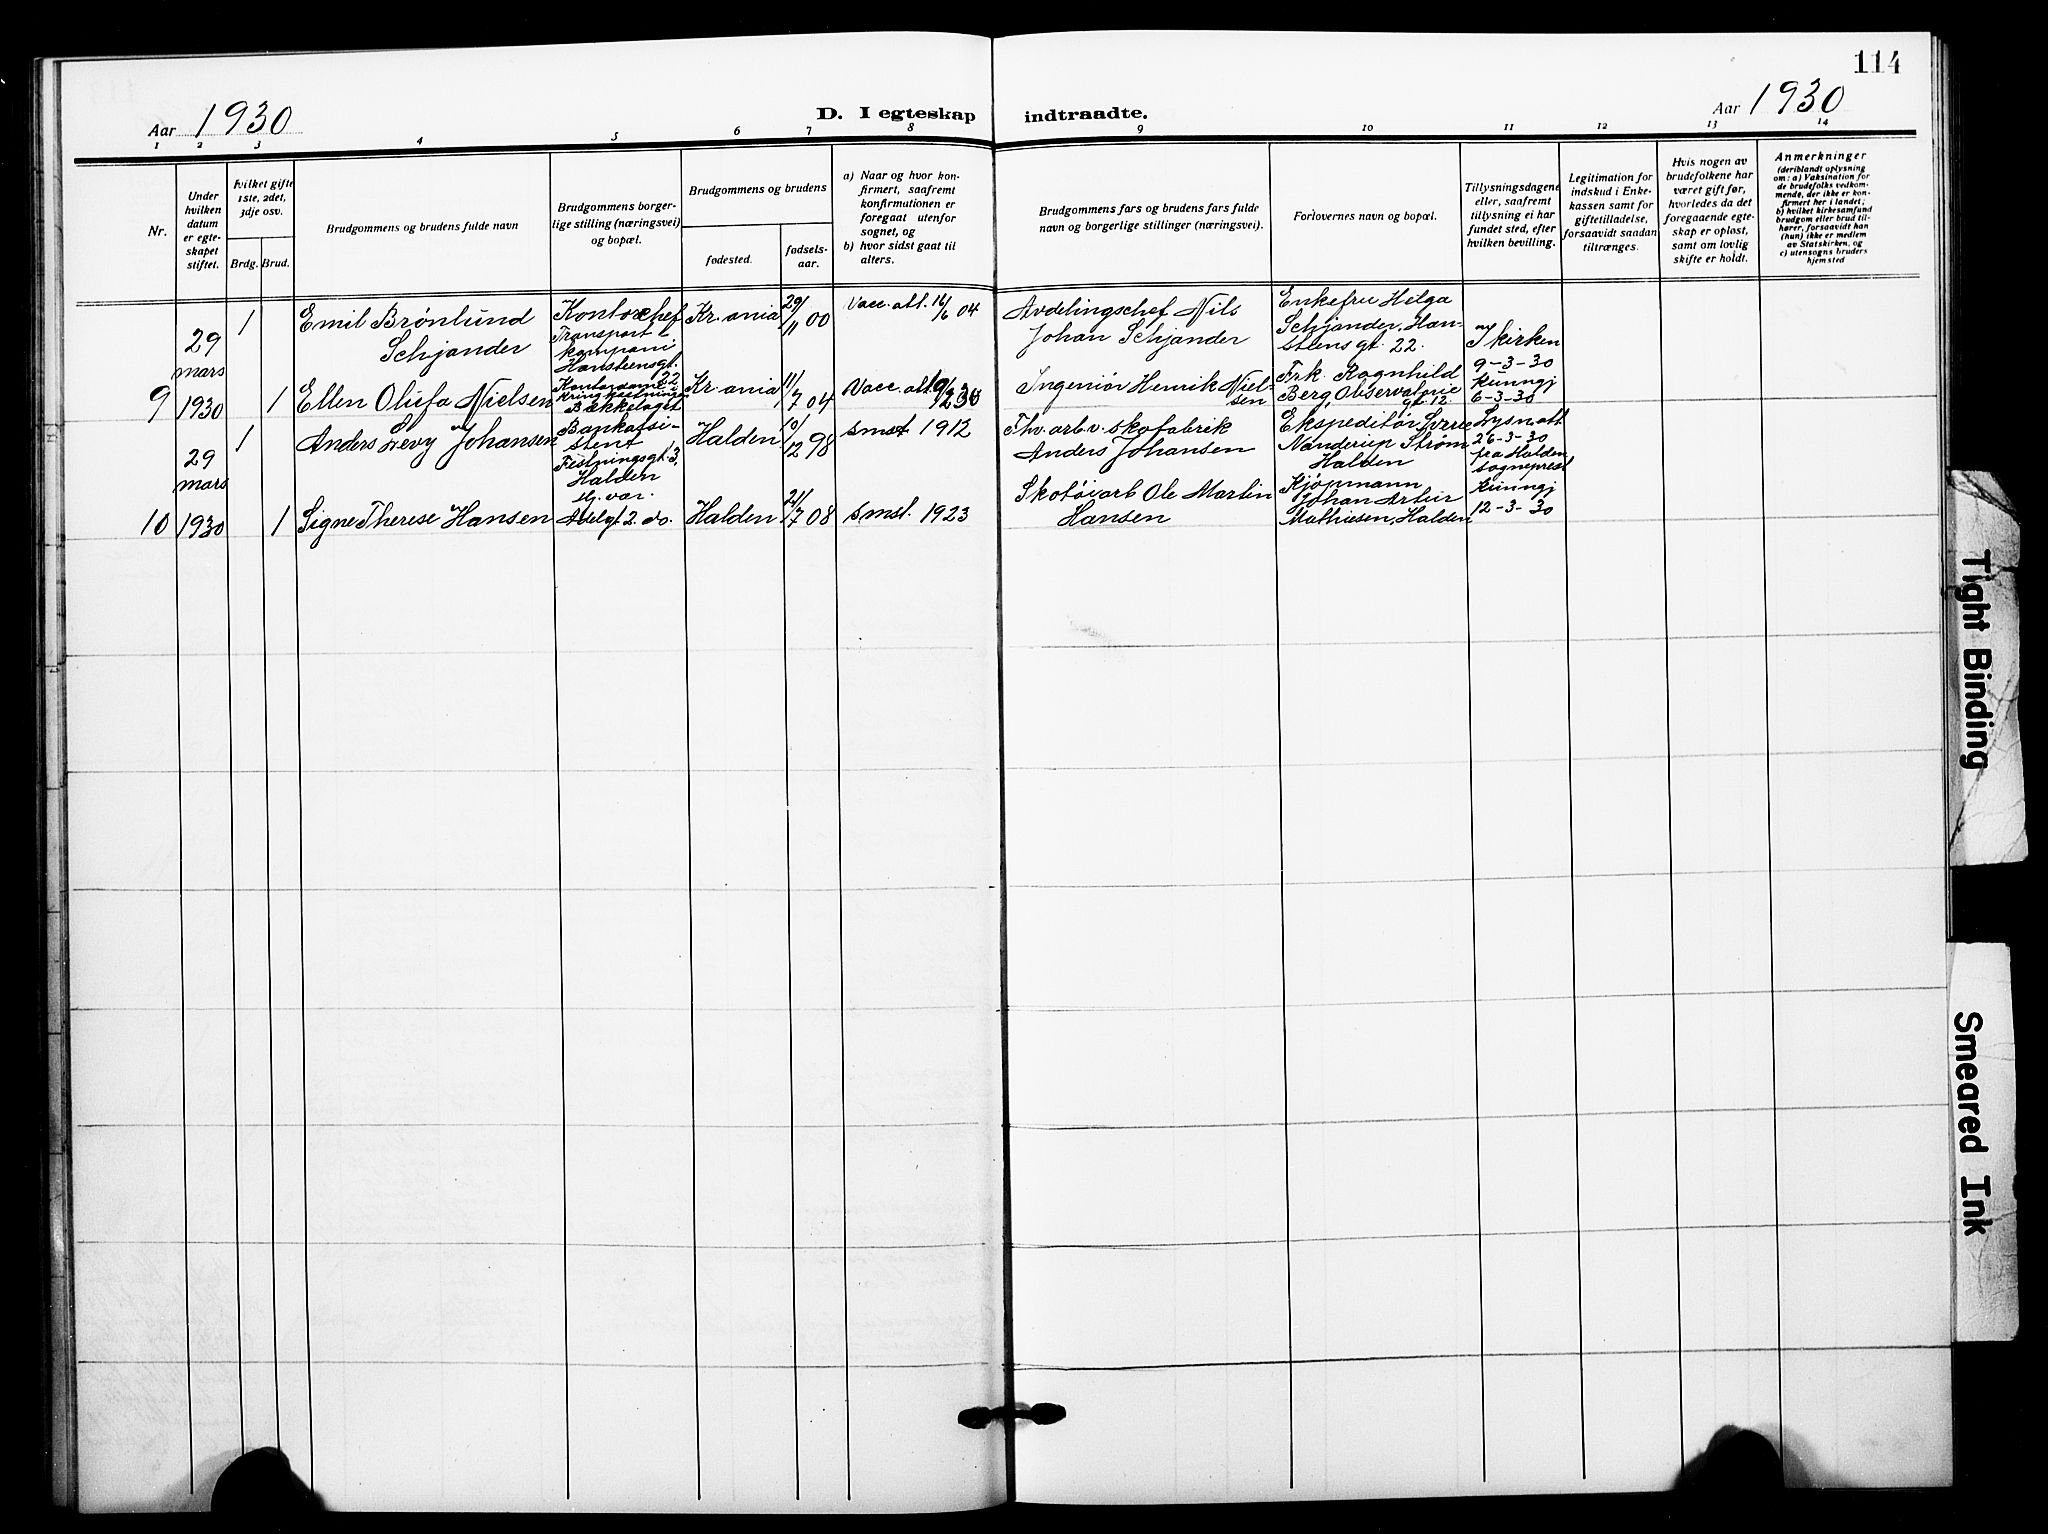 114
Aar 1930
D. I egteskap indtraadte.
Aar 1930
1 2 3 4 5 6 7 8 9 10 11 12 13 14
Nr.
Under
hvilken
datum
er egte-
skapet
stiftet.
hvilket gifte
1ste, 2det,
3dje osv.
Brdg. Brud.
Brudgommens og brudens fulde navn
Brudgommens borger-
lige stilling (næringsvei)
og bopæl.
Brudgommens og brudens
fødested.
fødsels-
aar.
a) Naar og hvor kon-
firmert, saafremt
konfirmationen er
foregaat utenfor
sognet, og
b) hvor sidst gaat til
alters.
Brudgommens fars og brudens fars fulde
navn og borgerlige stillinger (næringsvei).
Forlovernes navn og bopæl.
Tillysningsdagene
eller, saafremt
tillysning ei har
fundet sted, efter
hvilken bevilling.
Legitimation for
indskud i Enke-
kassen samt for
giftetilladelse,
forsaavidt saadan
tiltrænges.
Hvis nogen av
brudefolkene har
været gift før,
hvorledes da det
foregaaende egte-
skap er opløst,
samt om lovlig
skifte er holdt.
Anmerkninger
(deriblandt oplysning
om: a) Vaksination for
de brudefolks vedkom-
mende, der ikke er kon-
firmert her i landet;
b) hvilket kirkesamfund
brudgom eller brud til-
hører, forsaavidt han
(hun) ikke er medlem
av Statskirken, og
c) utensogns bruders
hjemsted
9
29
mars
1930
1
Emil Brønlund
Schjander
Kontorchef
Transport-
kompani
Hansteensgt.
22
Kr.ania
29/11 00
Vacc. att. 16/6 04
Avdelingschef Nils
Johan Schjander
Enkefru Helga
Schjander, Han-
steensgt. 22.
I kirken
9-3-30
1
Ellen Olufa Nielsen
Kontordame
Bækkelaget
Kr.ania
11/7 04
Vacc. att.
Ingeniør Henrik Niel-
sen
Frk. Ragnhild
Berg, Observatorie
gt. 12
kunngj
6-3-30
10
29
mars
1930
1
Anders Levy Johansen
Bankassi-
stent
Festningsgt. 3,
Halden
Halden
10/12 98
Smst 1912
Thv. arb. v. skofabrik
Anders Johansen
Ekspeditør Sverre
Nanderup Strøm
Halden
Lysn att
26-3-30
fra Halden
sogneprest
1
Signe Therese Hansen
Hj. vær.
Adelgt 2. do.
Halden
21/7 08
Smst. 1923
Skotøiarb Ole Martin
Hansen
Kjøpmann
Johan Artur
Mathiesen, Halden
kunngj
12-3-30
Tight Binding
Smeared Ink